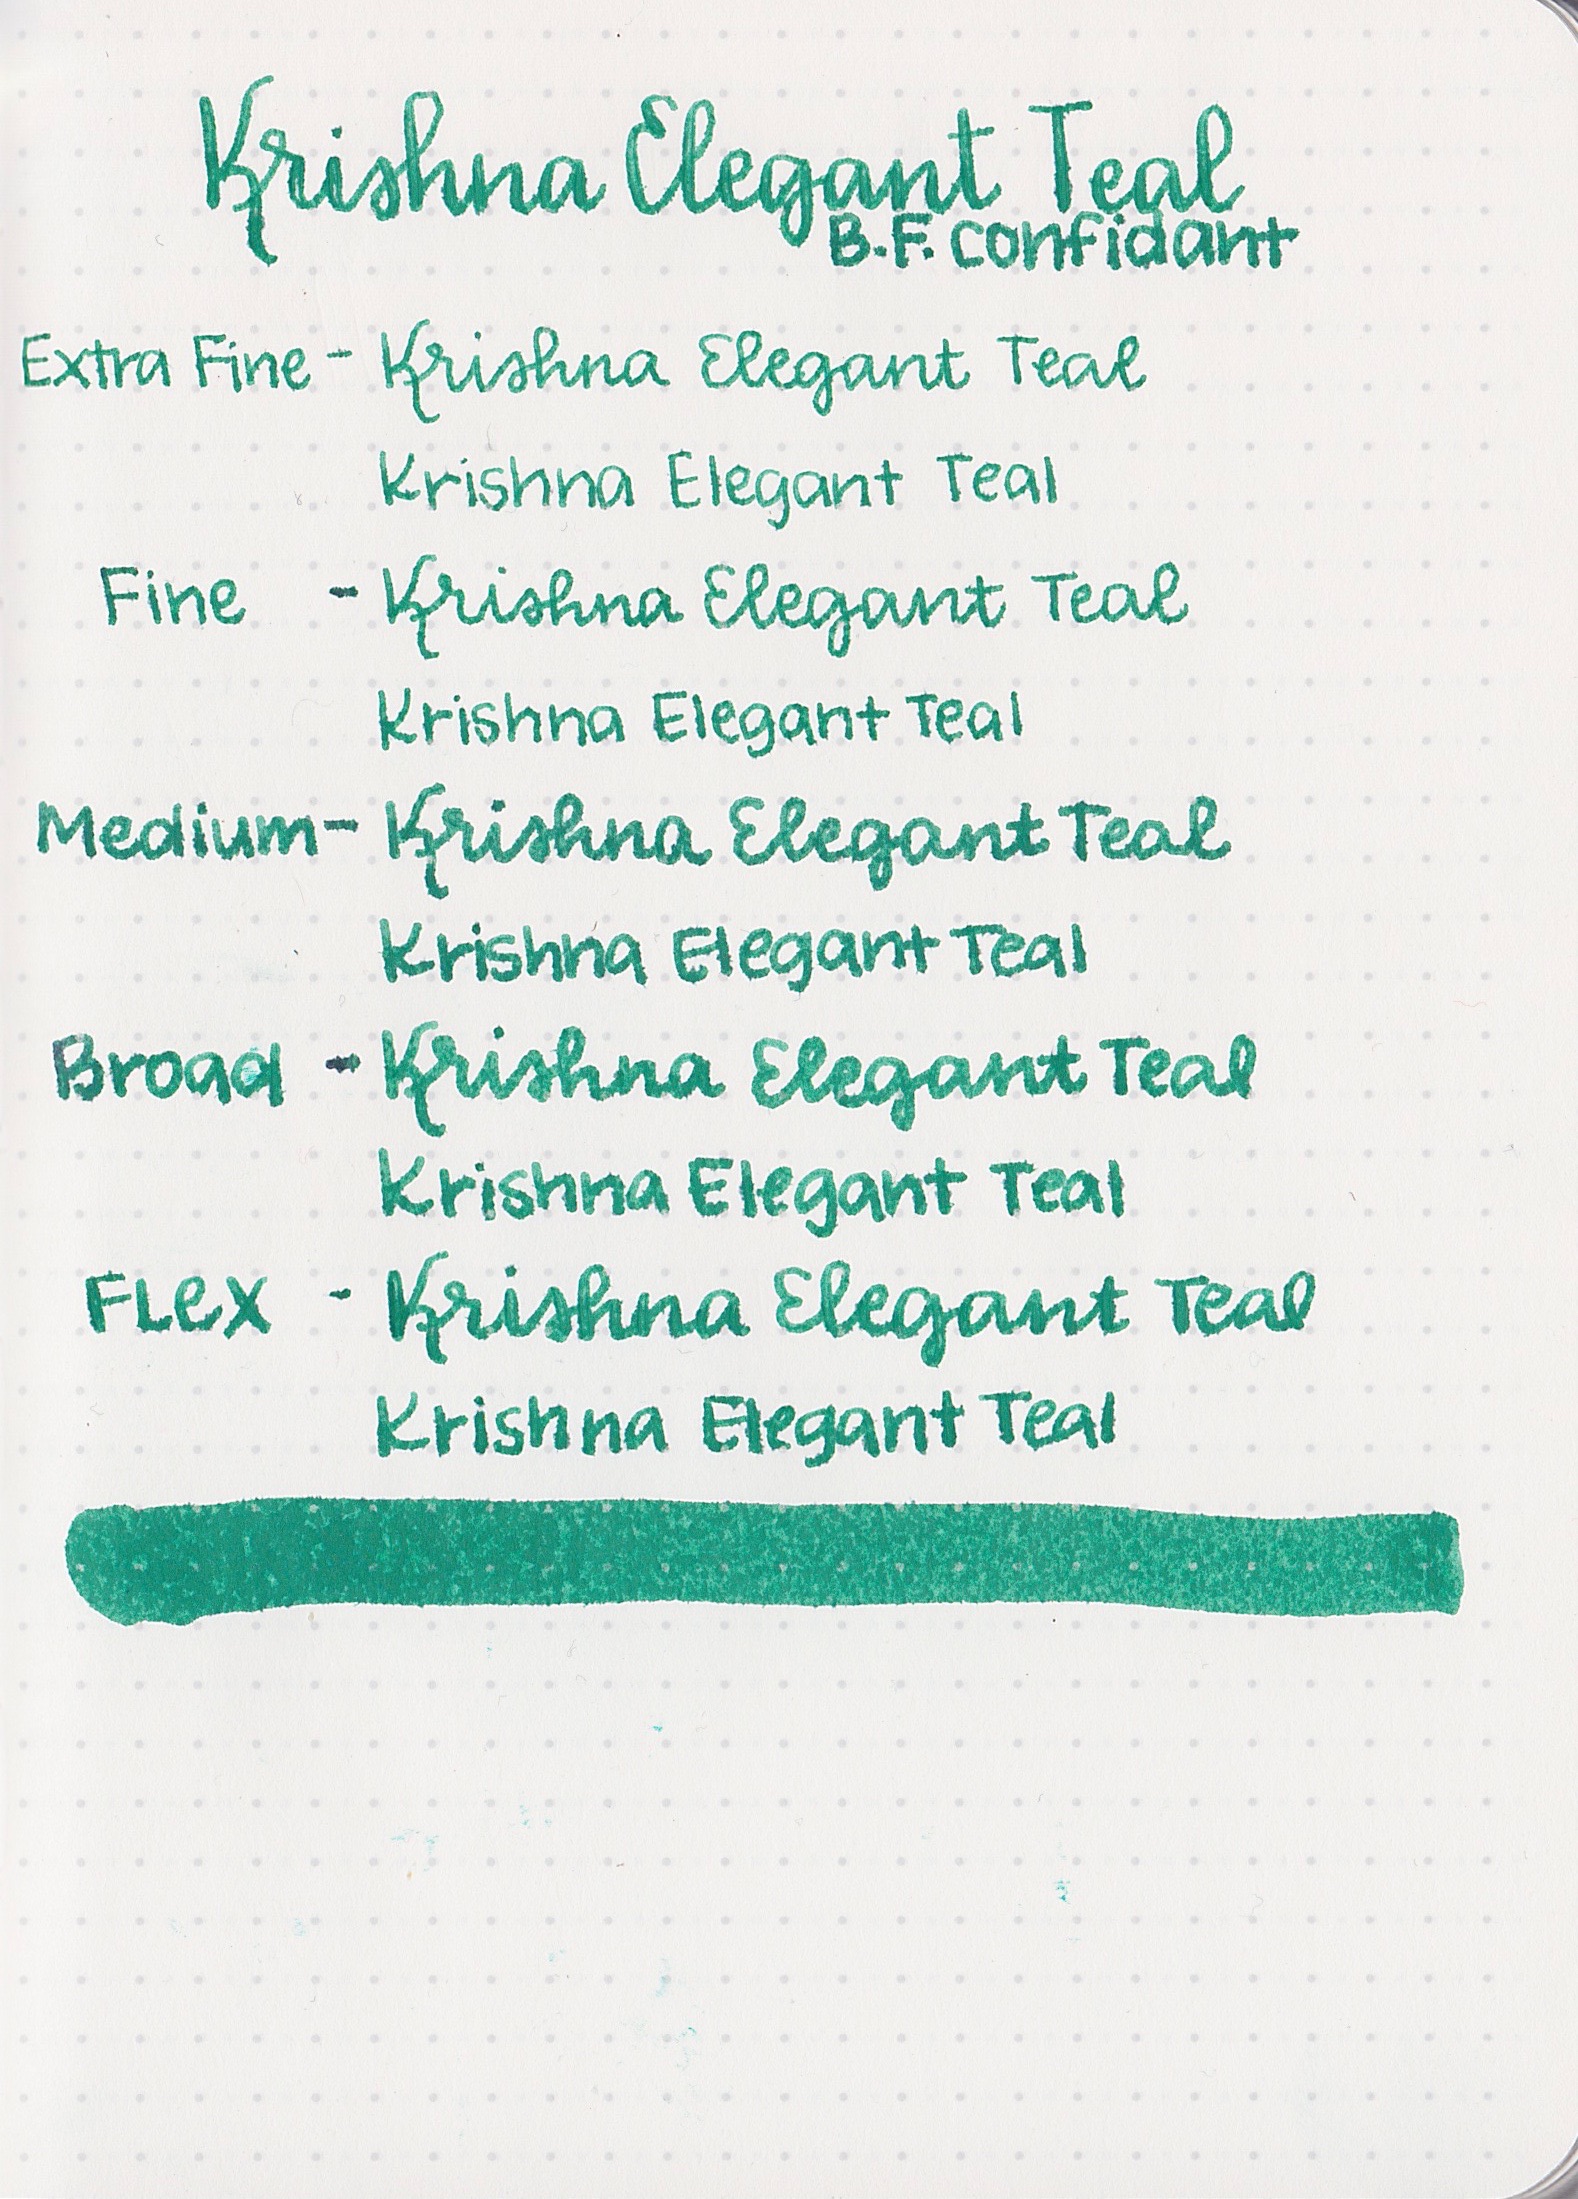 Krishna Elegant Teal
B.F. Confidant
Extra Fine - Krishna Elegant Teal
Krishna Elegant Teal
Fine - Krishna Elegant Teal
Krishna Elegant Teal
Medium - Krishna Elegant Teal
Krishna Elegant Teal
Broad - Krishna Elegant Teal
Krishna Elegant Teal
FLex - Krishna Elegant Teal
Krishna Elegant Teal